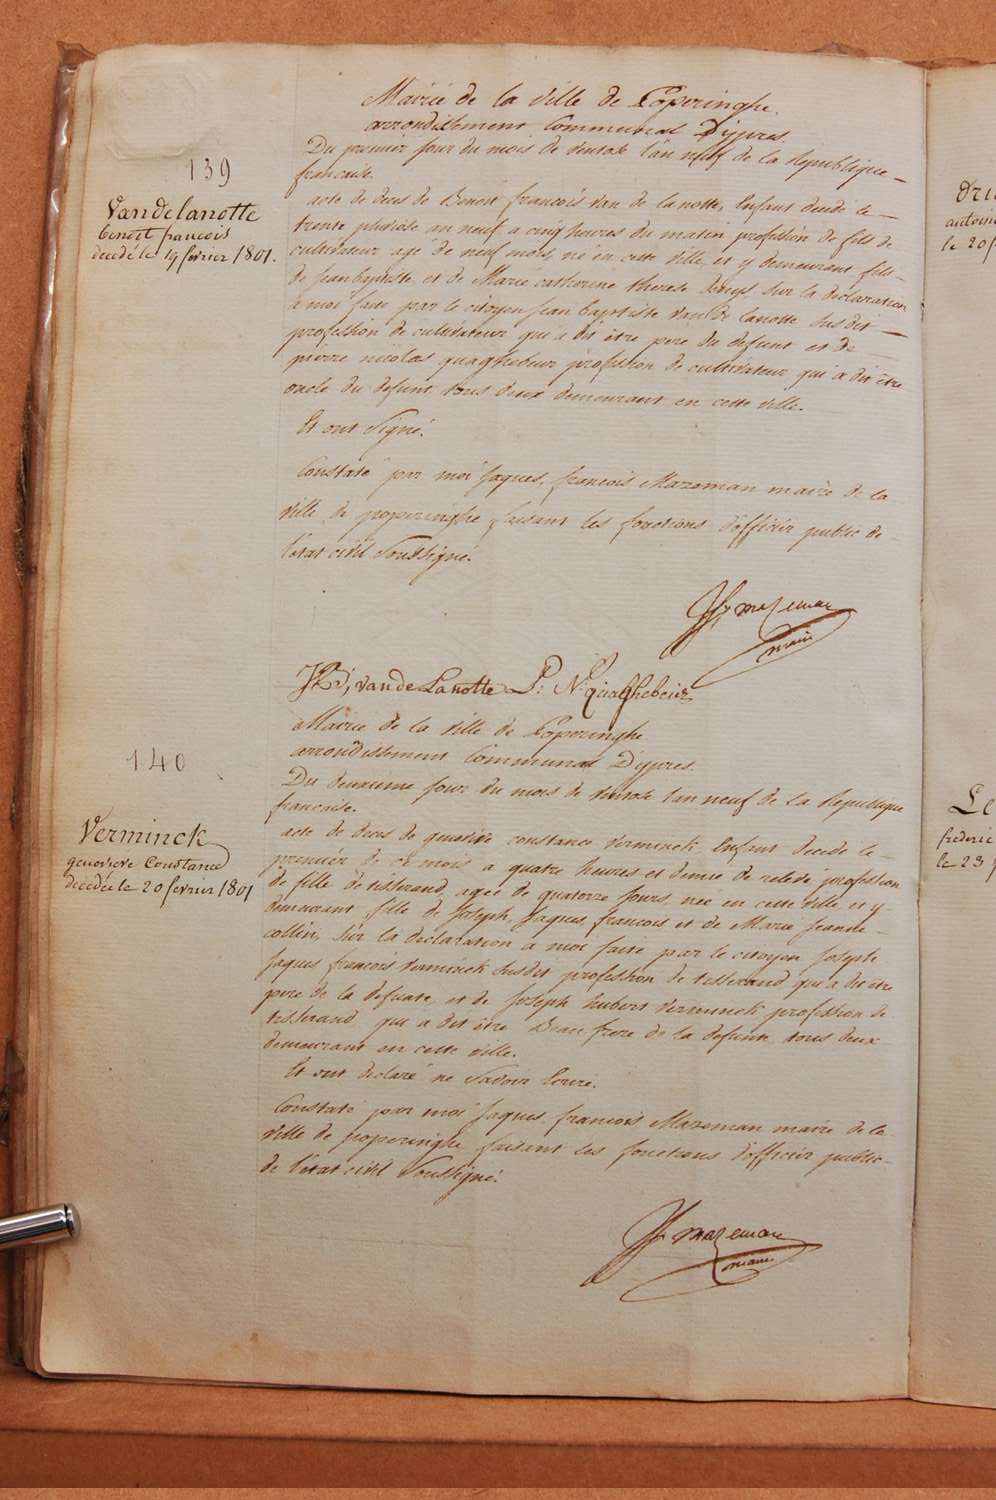 Mairie de la ville de Poperinghe.
arrondissement Communal D'ypres.
139
Du premier Jour du mois de ventose l'an neuf de la Republique
francaise.
Vandelanotte
benoit francois
decedé le 19 fevrier 1801.
acte de deces de Benoit francois van de lanotte, Enfant decedé le
trente pluviose an neuf a cinq heures du matin profession de fils de
cultivateur agé de neuf mois, né en cette ville et y demeurant fils
de Jean baptiste et de Marie catherine therese denys sur la declaration
a moi faite par le citoyen Jean baptiste van de lanotte susdit
profession de cultivateur qui a dit être pere du defunt et de
pierre nicolas quaghebeur profession de cultivateur qui a dit être
oncle du defunt tous deux demeurant en cette ville.
Et ont Signé.
Constaté par moi Jaques, francois Mazeman maire de la
ville de poperinghe faisant les fonctions d'officier public de
l'état civil Soussigné.
JF mazeman
maire
JB, van de Lanotte P: N: Quaghebeur
Mairie de la ville de Poperinghe
arrondissement Communal D'ypres.
140
Du deuxieme Jour du mois de ventose l'an neuf de la Republique
francaise.
Verminck
genevieve Constance
decedée le 20 fevrier 1801
acte de deces de genevive constance verminck Enfant decedé le
premier de ce mois a quatre heures et demie de relevé profession
de fille de tisserand, agée de quatorze Jours née en cette ville et y
demeurant fille de Joseph, Jaques, francois et de Marie Jeanne
collin, sur la declaration a moi faite par le citoyen Joseph
Jaques francois verminck susdit profession de tisserand qui a dit être
pere de la defunte et de Joseph hubert verminck profession de
tisserand qui a dit être Beau frere de la defunte tous deux
demeurant en cette ville.
Et ont declaré ne Savoir Ecrire.
Constaté par moi Jaques francois Mazeman maire de la
ville de poperinghe faisant les fonctions d'officier public
de l'état civil Soussigné.
JF mazeman
maire
le 20 f
Le
frederic
le 23